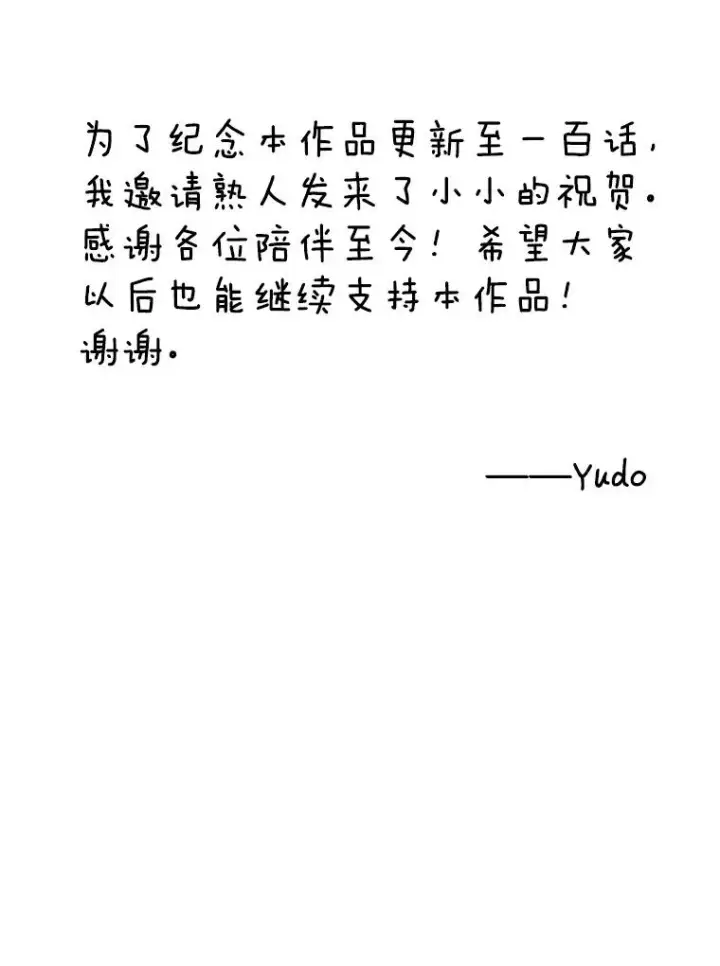 为了纪念本作品更新至一百话,
我邀请熟人发来了小小的祝贺。
感谢各位陪伴至今！希望大家
以后也能继续支持本作品！
谢谢。
——Yudo